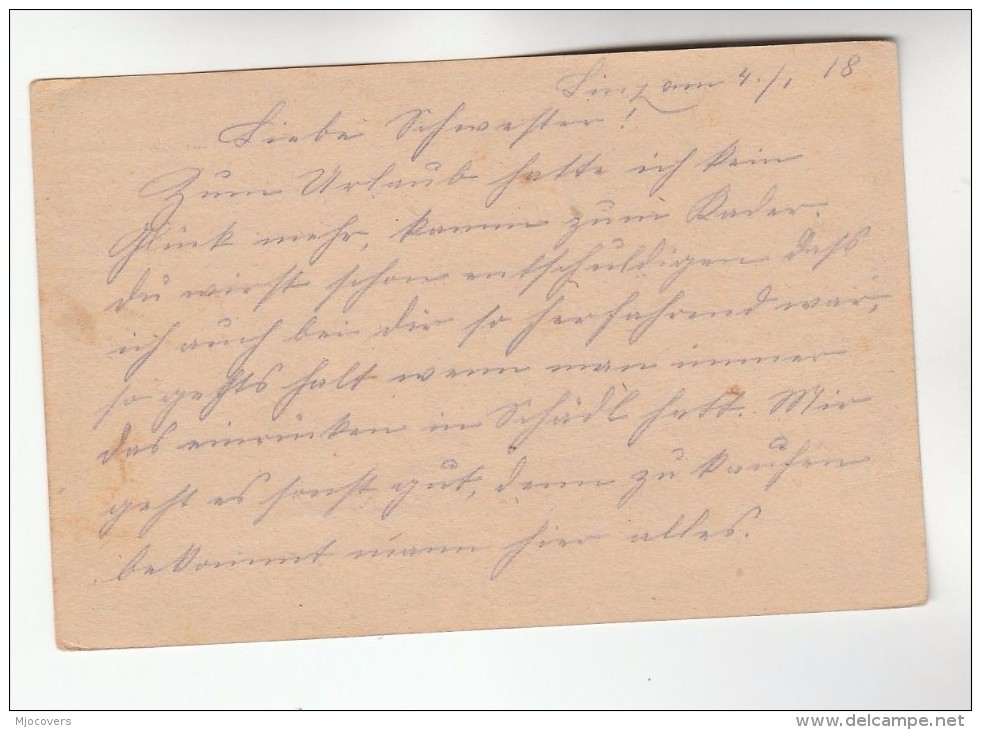 Linz am 4./1 18
Liebe Schwester!
Zum Urlaub hatte ich kein
Glück mehr, kamm zum Kader.
du wirst schon entschuldigen dass
ich auch bei dir so herfahrend war,
so gehts halt wenn man immer
das einrücken in Schädl hatt. Mir
geht es sonst gut, denn zu kaufen
bekommt mann hier alles.
Mjocovers
www.delcampe.net